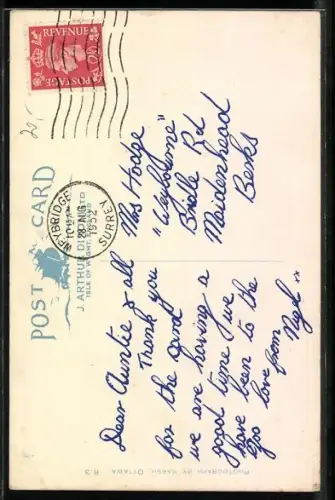 POST CARD
J. ARTHUR DIXON LTD
ISLE OF WIGHT, ENGLAND
POSTAGE
REVENUE
WEYBRIDGE
28 AUG
1952
SURREY
Dear Auntie & all
Thank you
for the card
we are having a
good time we
have been to the
zoo love from
Miss Hodge
"Weybourne"
Bridle Rd
Maidenhead
Berks
PHOTOGRAPH BY KARSH, OTTAWA B.3
20/